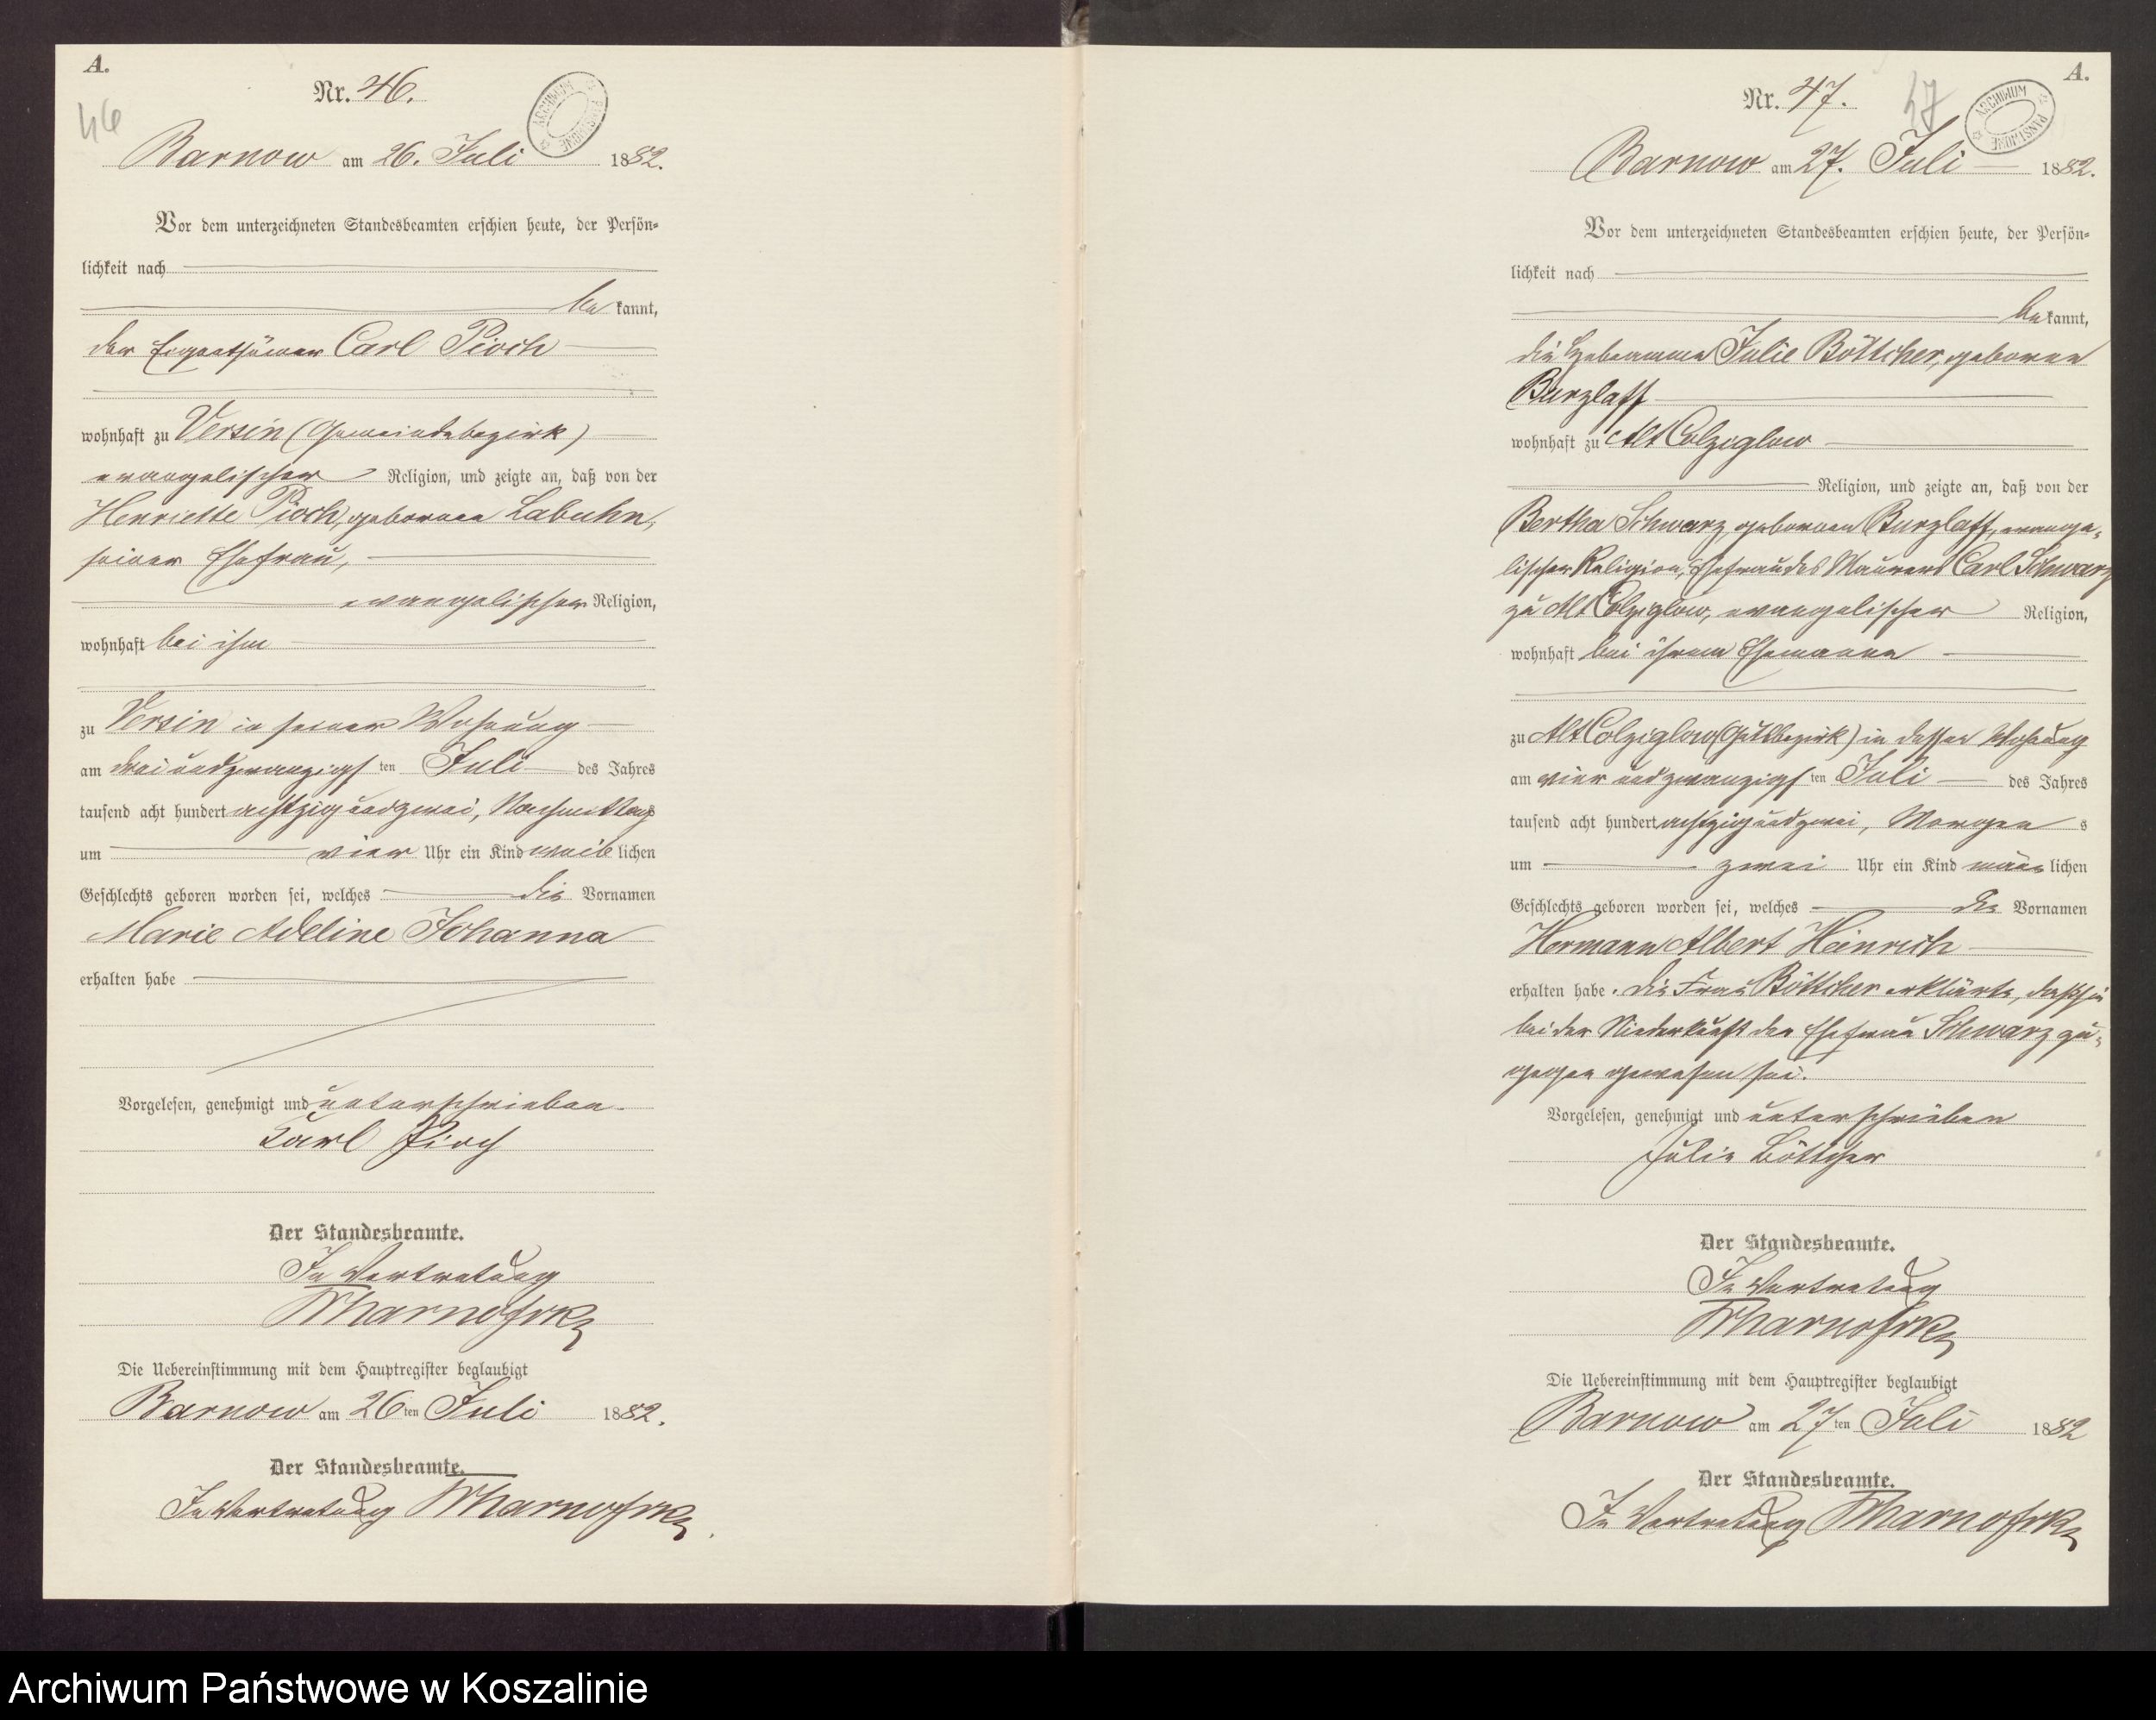 A.
46
Nr. 46.
ARCHIWUM PAŃSTWOWE
Barnow am 26. Juli 1882.
Vor dem unterzeichneten Standesbeamten erschien heute, der Persön-
lichkeit nach
be kannt,
der Eigenthümer Carl Pioch
wohnhaft zu Versin (Gemeindebezirk)
evangelischer Religion, und zeigte an, daß von der
Henriette Pioch, geborenen Labuhn,
seiner Ehefrau,
evangelischer Religion,
wohnhaft bei ihm
zu Versin in seiner Wohnung
am drei und zwanzigs ten Juli des Jahres
tausend acht hundert achtzig und zwei, Nachmittags
um vier Uhr ein Kind weib lichen
Geschlechts geboren worden sei, welches die Vornamen
Marie Adeline Johanna
erhalten habe
Vorgelesen, genehmigt und unterschrieben.
Karl Pioch
Der Standesbeamte.
In Vertretung
Die Uebereinstimmung mit dem Hauptregister beglaubigt
Barnow am 26 ten Juli 1882.
Der Standesbeamte.
In Vertretung
A.
Nr. 47.
47
ARCHIWUM PAŃSTWOWE
Barnow am 27. Juli 1882.
Vor dem unterzeichneten Standesbeamten erschien heute, der Persön-
lichkeit nach
be kannt,
die Hebeamme Julie Böttcher, geborene
Burzlaff
wohnhaft zu Alt Colziglow
Religion, und zeigte an, daß von der
Bertha Schwarz, geborenen Burzlaff, evange-
lischer Religion, Ehefrau des Maurers Carl Schwarz
zu Alt Colziglow, evangelischer Religion,
wohnhaft bei ihrem Ehemanne
zu Alt Colziglow (Gutsbezirk) in dessen Wohnung
am vier und zwanzigs ten Juli des Jahres
tausend acht hundert achtzig und zwei, Morgen s
um zwei Uhr ein Kind männ lichen
Geschlechts geboren worden sei, welches die Vornamen
Hermann Albert Heinrich
erhalten habe. Die Frau Böttcher erklärte, daß sie
bei der Niederkunft der Ehefrau Schwarz zu-
gegen gewesen sei.
Vorgelesen, genehmigt und unterschrieben
Julie Böttcher
Der Standesbeamte.
In Vertretung
Die Uebereinstimmung mit dem Hauptregister beglaubigt
Barnow am 27 ten Juli 1882
Der Standesbeamte.
In Vertretung
Archiwum Państwowe w Koszalinie